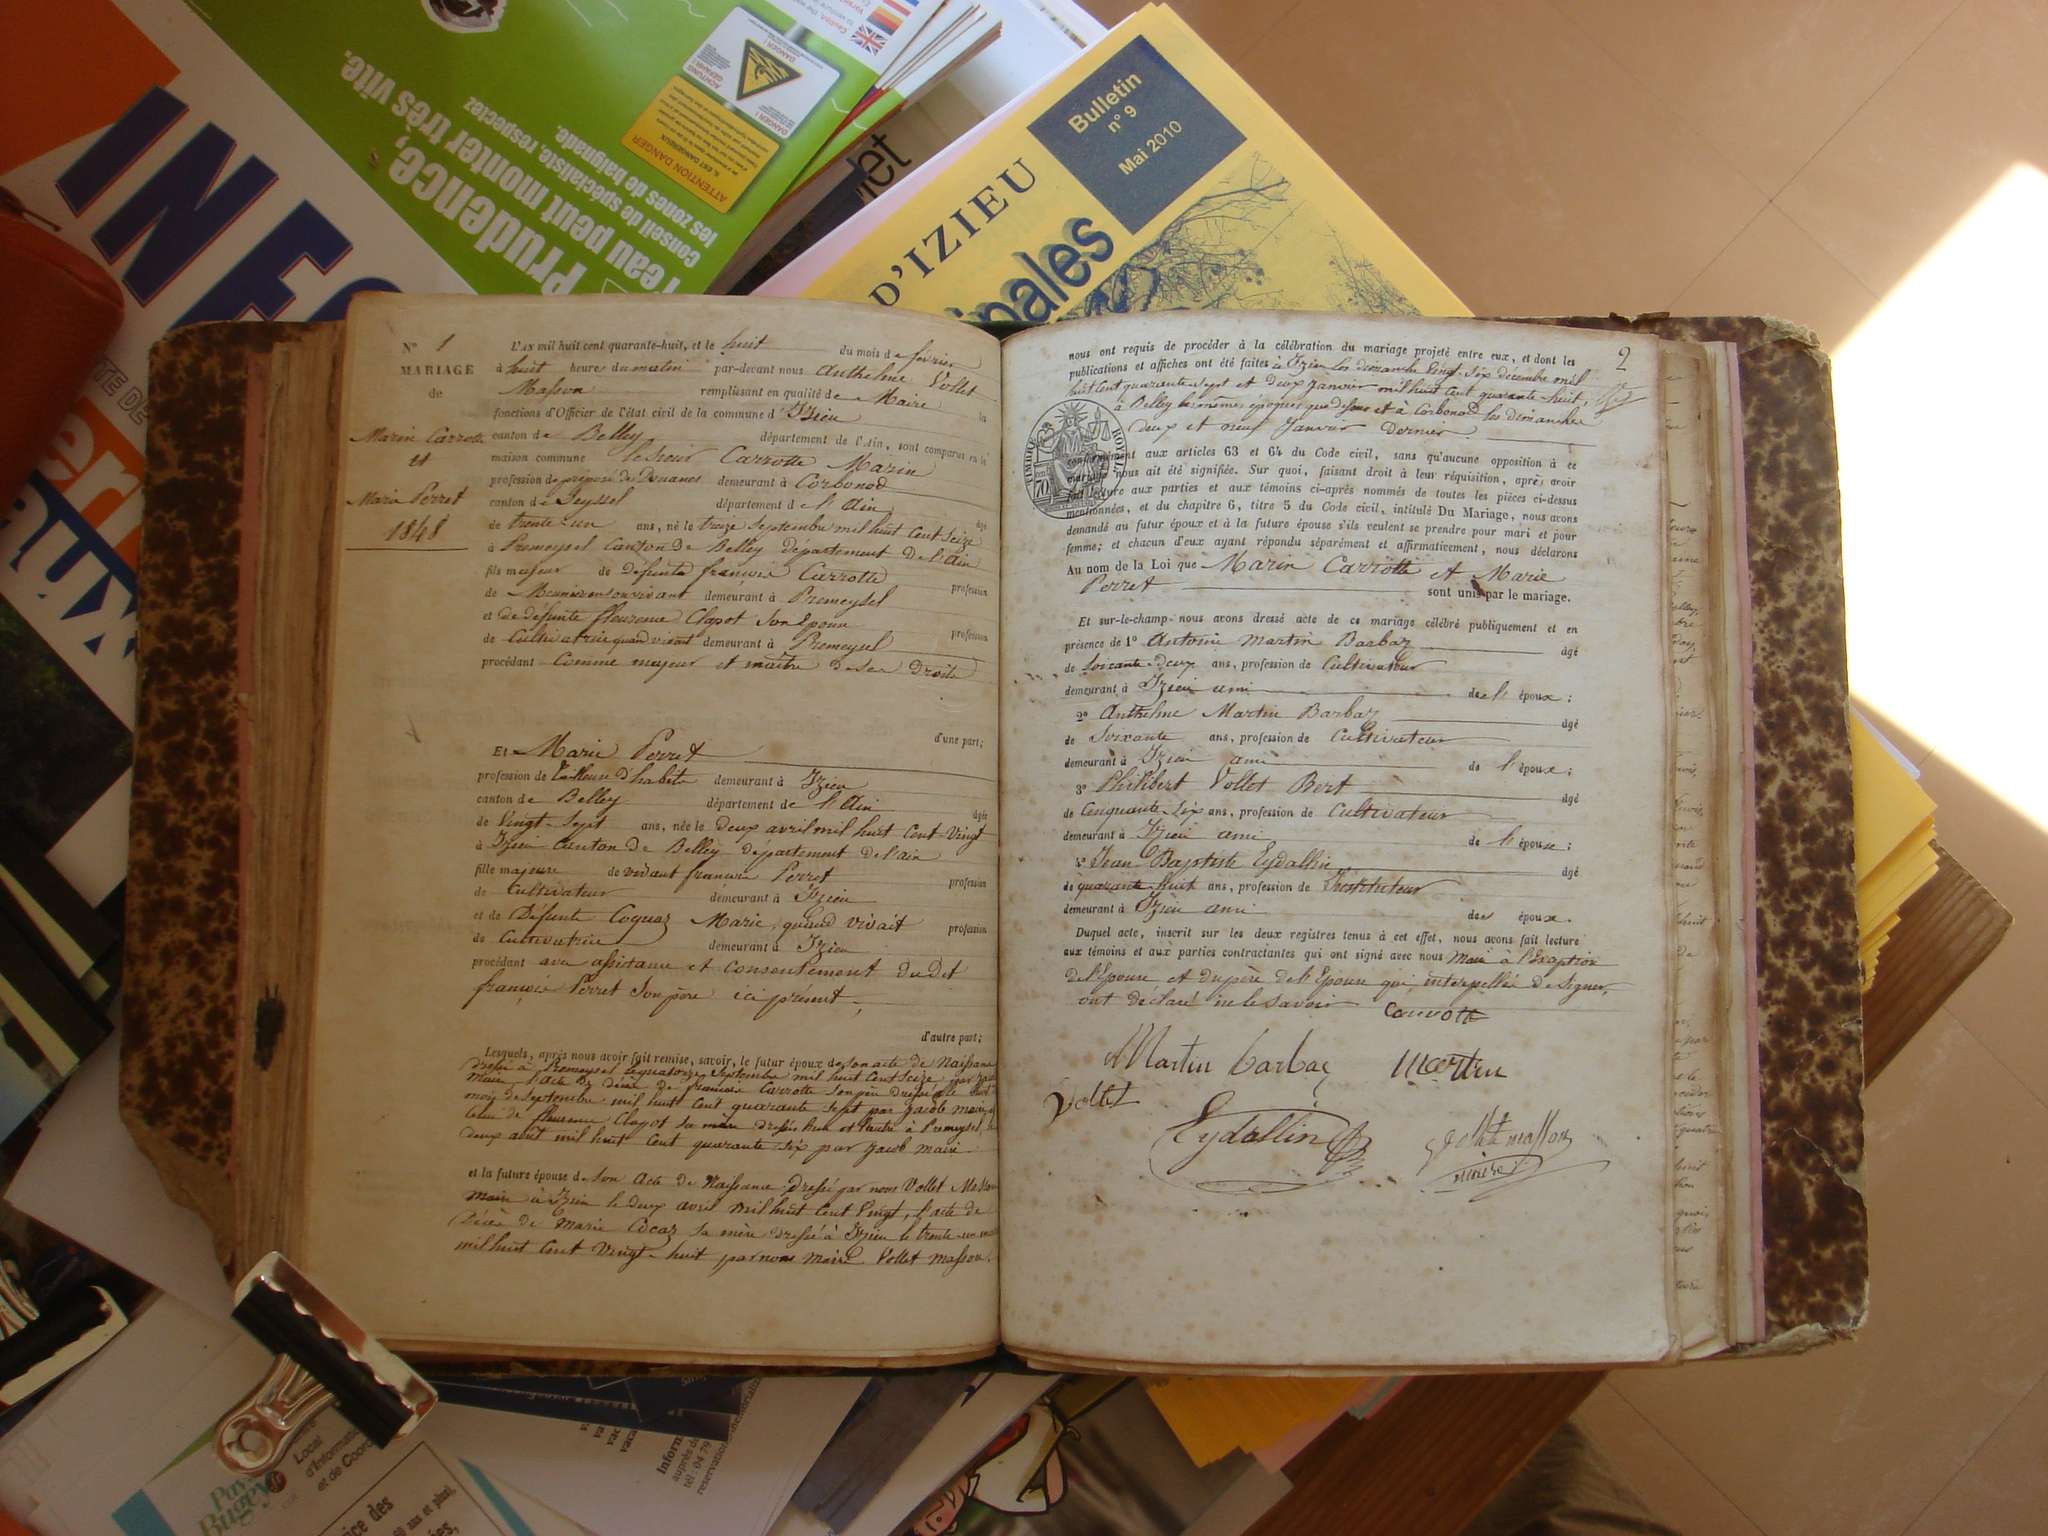 INFO
Prudence,
l'eau peut monter très vite.
conseil de spécialiste, respectez
les zones de baignade.
ATTENTION DANGER
DANGER !
D'IZIEU
Bulletin
n° 9
Mai 2010
N° 1
MARIAGE
de
Marin Carrotte
et
Marie Perret
1848
L'AN mil huit cent quarante-huit, et le huit du mois de février
à huit heures du matin par-devant nous Anthelme Vollet
Masson remplissant en qualité de Maire les
fonctions d'Officier de l'état civil de la commune d'Izieu
canton de Belley département de l'Ain, sont comparus en la
maison commune le sieur Carrotte Marin
profession de préposé des Douanes demeurant à Corbonod
canton de Seyssel département de l'Ain, âgé
de trente-un ans, né le treize septembre mil huit cent seize
à Premeysel canton de Belley département de l'Ain
fils majeur de défunte françois Carrotte profession
de Meunier en son vivant demeurant à Premeysel
et de défunte fleurence Clapot son Epouse profession
de Cultivatrice quand vivait demeurant à Premeysel
procédant comme majeur et maître de ses Droits
d'une part;
Et Marie Perret
profession de Tailleuse d'habits demeurant à Izieu
canton de Belley département de l'Ain âgée
de vingt-sept ans, née le deux avril mil huit cent vingt
à Izieu canton de Belley département de l'ain
fille majeure de vivant francois Perret profession
de Cultivateur demeurant à Izieu
et de Défunte Coquaz Marie, quand vivait profession
de Cultivatrice demeurant à Izieu
procédant avec assistance et consentement dudit
françois Perret son père ici présent,
d'autre part;
Lesquels, après nous avoir fait remise, savoir, le futur époux de son acte de Naissance
dressé à Premeysel le quatorze septembre mil huit cent seize par
maire, l'Acte de décès de francois Carrotte son père dressé le
mois de septembre mil huit cent quarante sept par Jacob maire, et
celui de fleurence Clapot sa mère dressés l'un et l'autre à Premeysel, le
deux août mil huit cent quarante six par Jacob maire
et la future épouse de son Acte de Naissance dressé par nous Vollet Masson
maire à Izieu le deux avril mil huit cent vingt, l'acte de
décès de marie Cocaz sa mère dressé à Izieu le trente-un
mil huit cent vingt-huit par nous maire Vollet masson.
2
nous ont requis de procéder à la célébration du mariage projeté entre eux, et dont les
publications et affiches ont été faites à Izieu les dimanches vingt-six décembre mil
huit cent quarante sept et deux janvier mil huit cent quarante-huit,
à Belley les mêmes époques que dessus et à Corbonod les dimanches
deux et neuf Janvier Dernier.
TIMBRE ROYAL
conformément aux articles 63 et 64 du Code civil, sans qu'aucune opposition à ce
mariage nous ait été signifiée. Sur quoi, faisant droit à leur réquisition, après avoir
fait lecture aux parties et aux témoins ci-après nommés de toutes les pièces ci-dessus
mentionnées, et du chapitre 6, titre 5 du Code civil, intitulé Du Mariage, nous avons
demandé au futur époux et à la future épouse s'ils veulent se prendre pour mari et pour
femme; et chacun d'eux ayant répondu séparément et affirmativement, nous déclarons
Au nom de la Loi que Marin Carrotte et Marie
Perret sont unis par le mariage.
Et sur-le-champ nous avons dressé acte de ce mariage célébré publiquement et en
présence de 1° Antoine Martin Barbaz âgé
de soixante-deux ans, profession de Cultivateur
demeurant à Izieu ami de l'époux;
2° Anthelme Martin Barbaz âgé
de soixante ans, profession de Cultivateur
demeurant à Izieu ami de l'époux;
3° Philibert Vollet Bert âgé
de cinquante-six ans, profession de Cultivateur
demeurant à Izieu ami de l'épouse;
4° Jean Baptiste Eydallin âgé
de quarante-huit ans, profession de Instituteur
demeurant à Izieu ami des époux.
Duquel acte, inscrit sur les deux registres tenus à cet effet, nous avons fait lecture
aux témoins et aux parties contractantes qui ont signé avec nous Maire à l'Exception
de l'Epouse et du père de l'Epouse qui interpellés de signer,
ont déclaré ne le savoir
Carrotte
Martin barbaz martin
Vollet
Eydallin
Vollet masson
maire
Pays
Bugey
Local
d'Information
et de Coord
auprès du